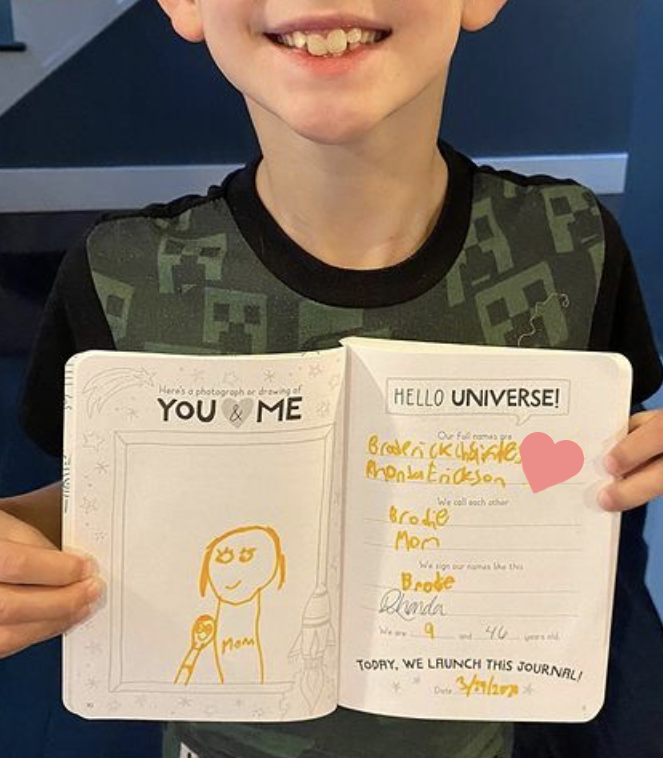 Here's a photograph or drawing of
YOU & ME
Mom
HELLO UNIVERSE!
Our full names are
Broderick
Rhonda Erickson
We call each other
Brodie
Mom
We sign our names like this
Brodie
Rhonda
We are 9 and 46 years old.
TODAY, WE LAUNCH THIS JOURNAL!
Date